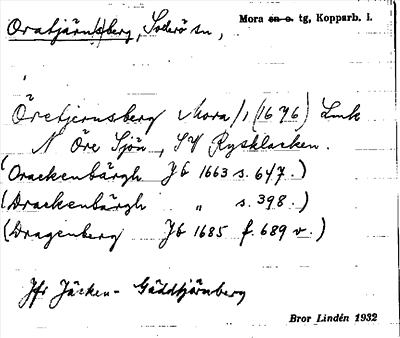 Oratjärn(s)berg, Sollerö sn, Mora sn o. tg, Kopparb. l.
Öretjernsberg Mora/1 (1676) Lmk
N Öre Sjön, SV Rysklacken.
(Orackenbärgh Jb 1663 s. 647.)
(Drackenbärgh " s. 398.)
(Dragenberg Jb 1685 f. 689 v.)
Jfr Jäcken- Gäddtjärnberg
Bror Lindén 1932